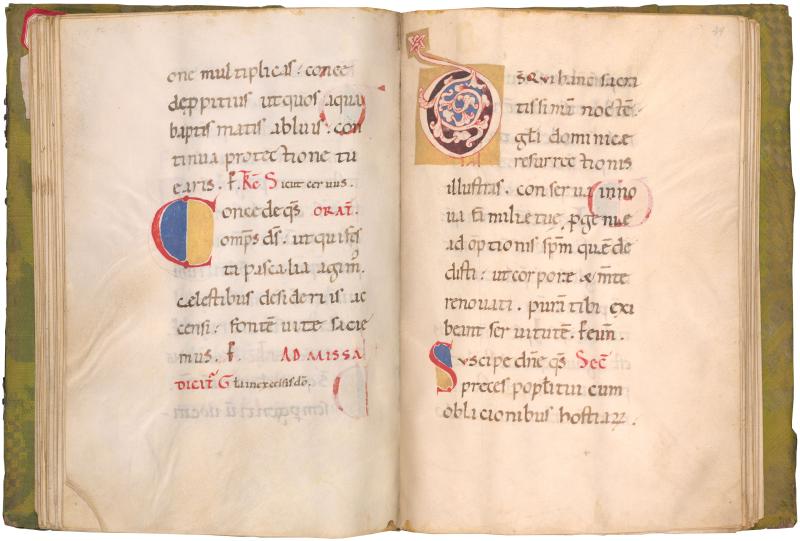 one multiplicas. conce
de ꝓpitius ut quos aqua
baptismatis abluis. con
tinua protectione tu
earis. ꝑ. R̄e Sicut ceruus.
Concede q̄s ORAT̄.
omp̄s d̄s. ut qui fes
ti paschalia agim̄.
celestibus desideriis ac
censi. fontē uite sacie
mus. ꝑ. AD MISSA
DICIT̄. Gl̄a in excelsis dō.
D̄s qui hanc sacra
tissimā noctē.
gl̄a dominicæ
resurrectionis
illustras. conserua in no
ua familiæ tuæ ꝓgenie
adoptionis sp̄m quē de
disti. ut corpore & m̄te
renouati. purā tibi exi
beant seruitutē. ꝑ eun̄.
Suscipe dn̄e q̄s Sec̄
preces popl̄i tui cum
oblacionibus hostiaꝝ.